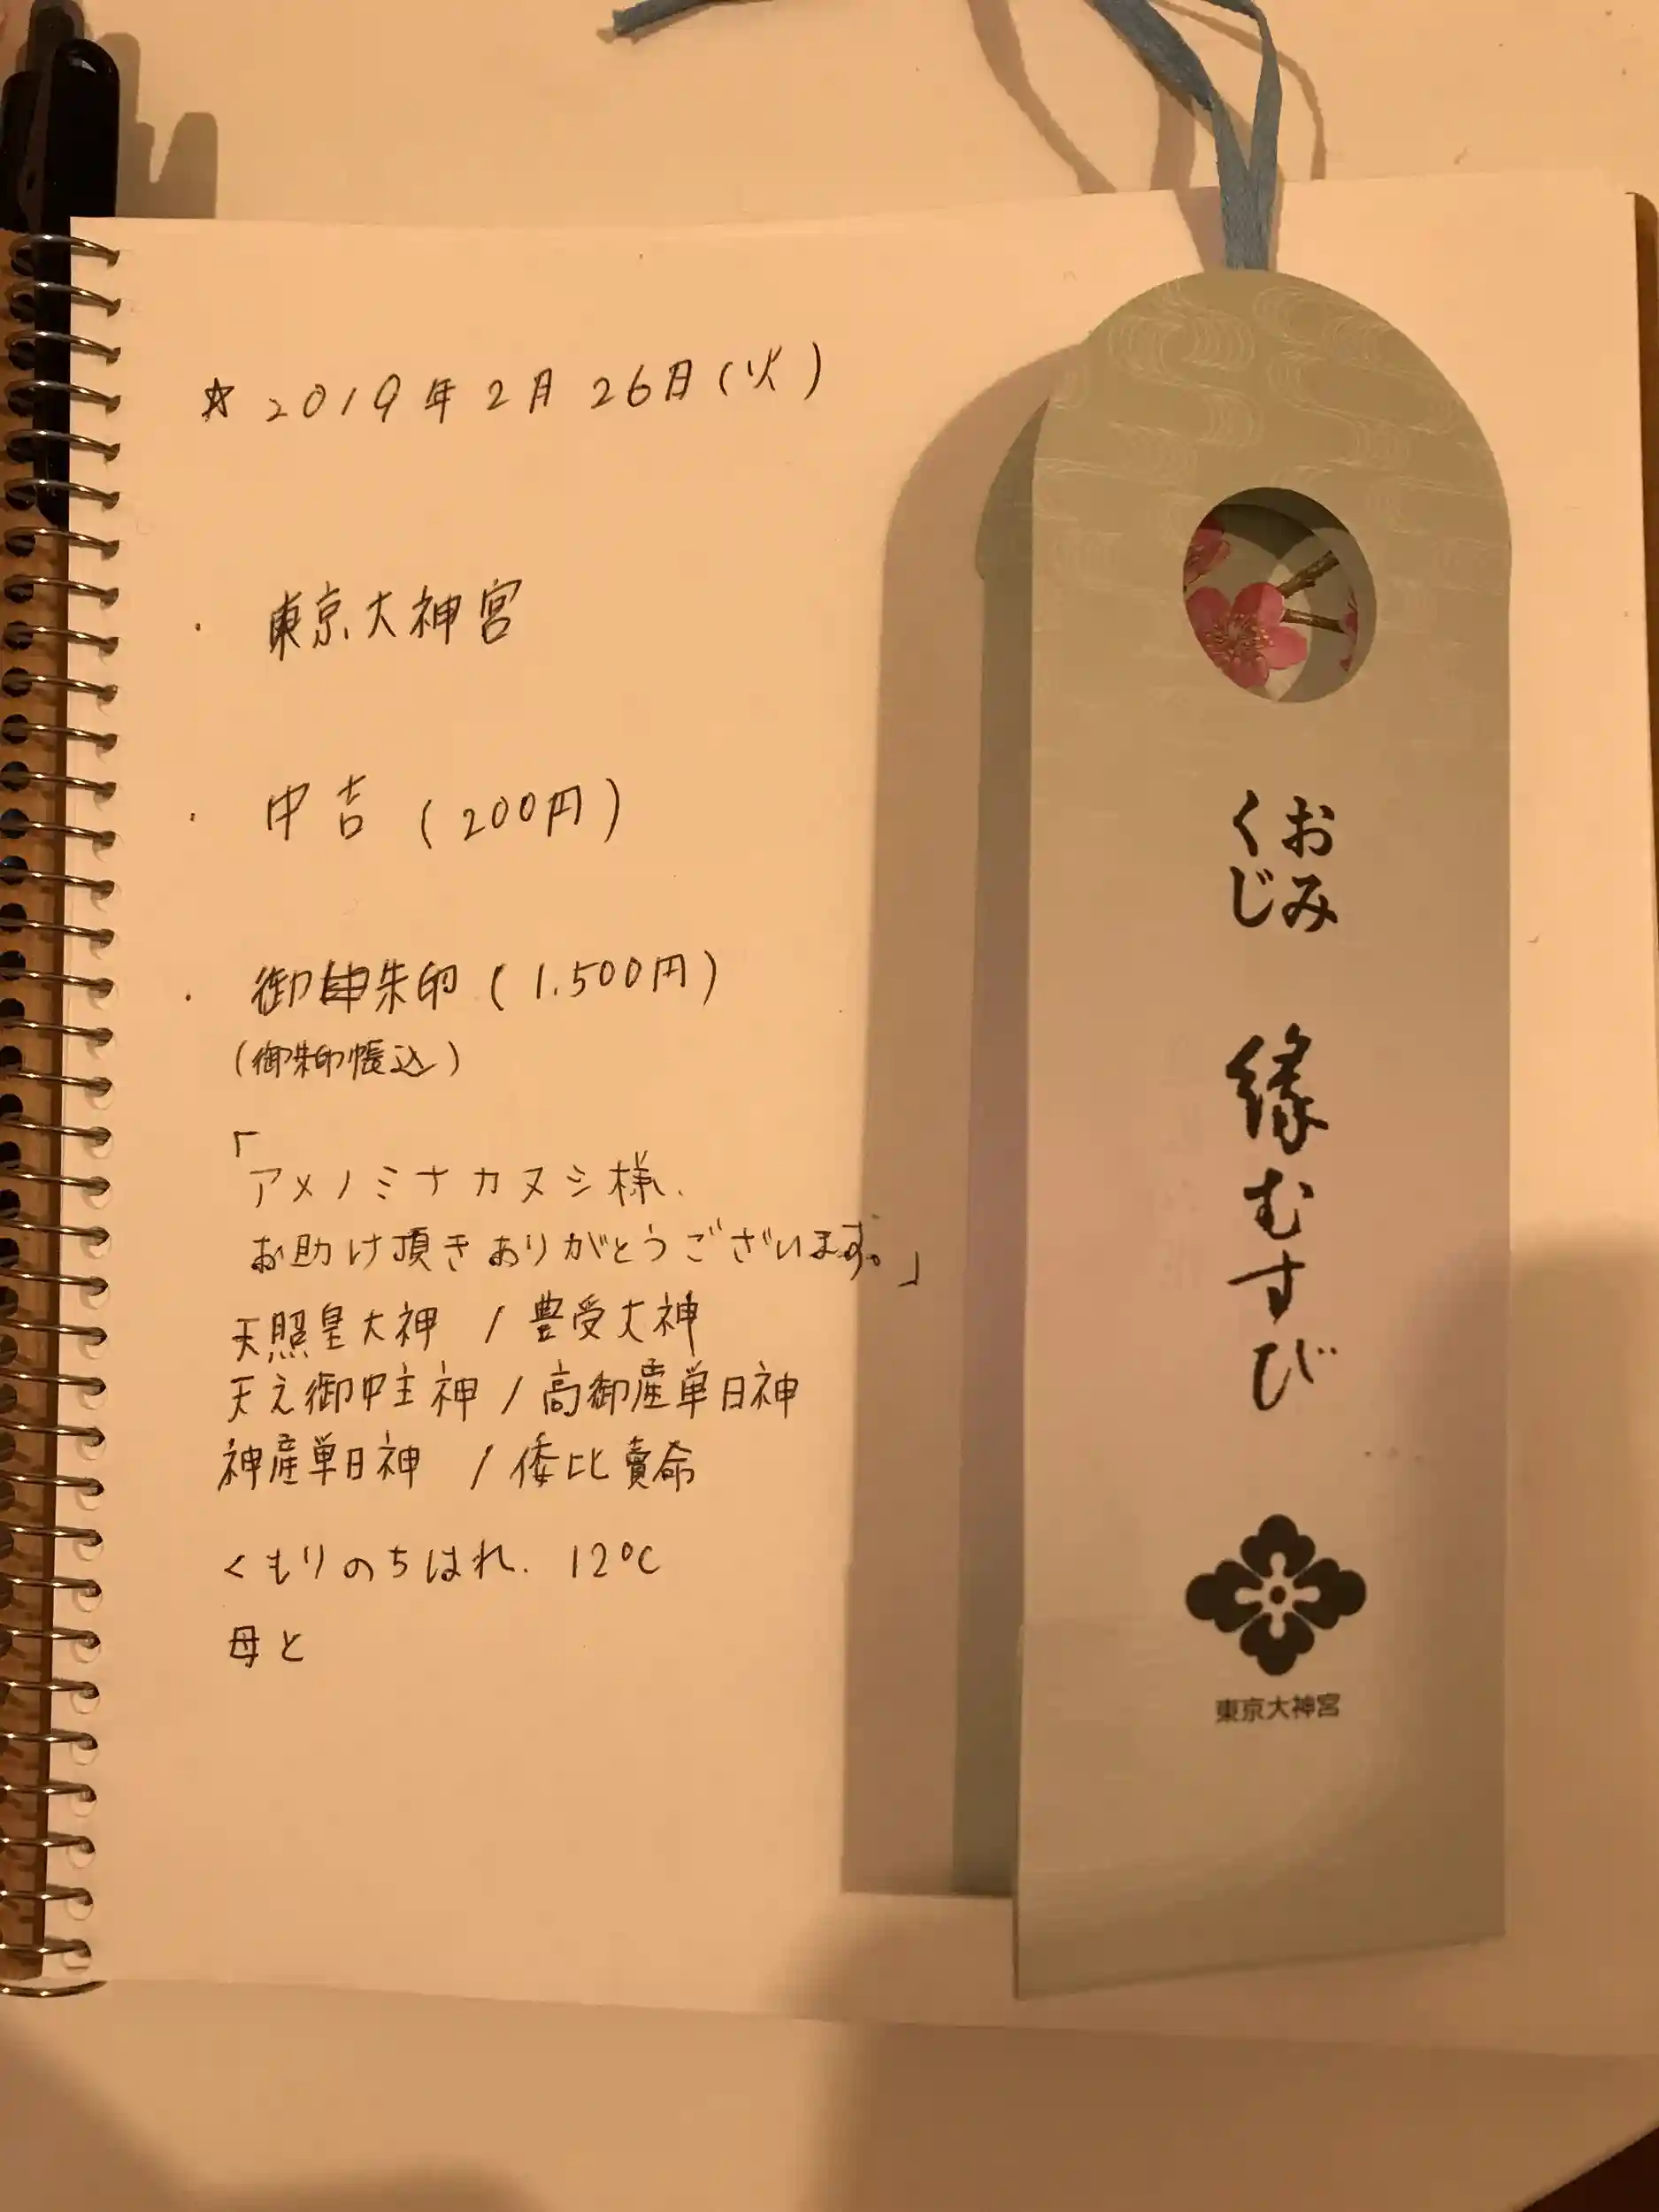 ☆ 2019年2月26日(火)
・ 東京大神宮
・ 中吉 (200円)
・ 御朱印 (1.500円)
(御朱印帳込)
「アメノミナカヌシ様、
お助け頂きありがとうございます。」
天照皇大神 / 豊受大神
天之御中主神 / 高御産単日神
神産単日神 / 倭比賣命
くもりのちはれ. 12℃
母と
おみ
くじ
縁むすび
東京大神宮